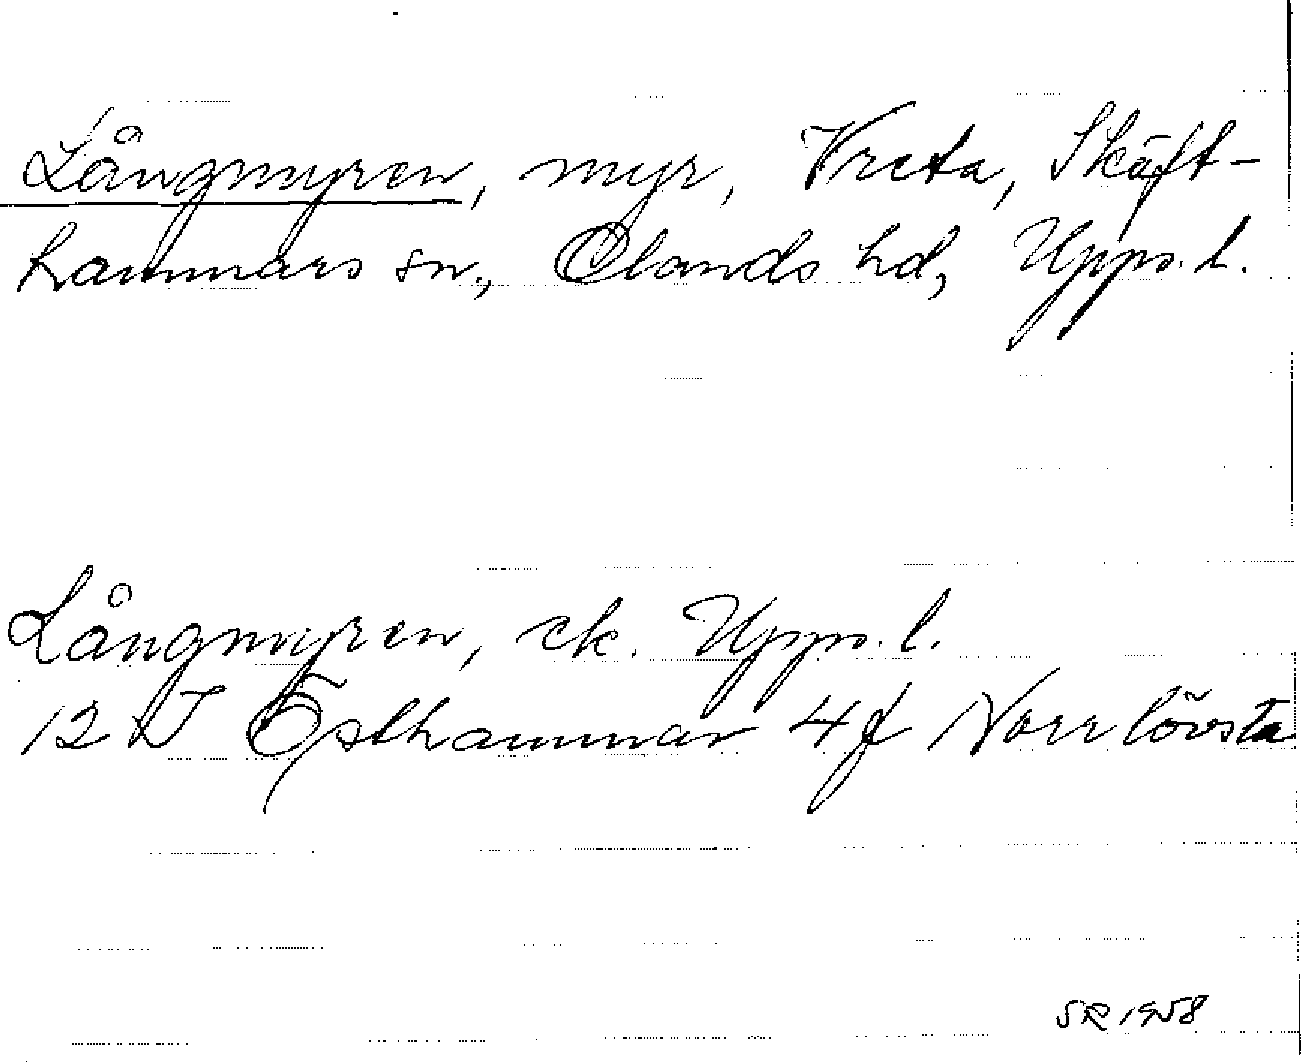 Långmyren, myr, Vreta, Skäft-
hammars sn., Olands hd, Upps. l.
Långmyren, ek. Upps. l.
12 I Östhammar 4f Norrlövsta
SR 1958